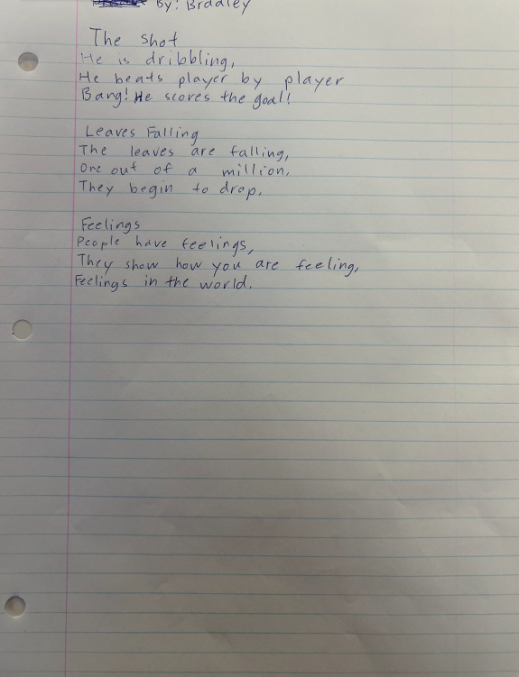 By: Bradley
The shot
He is dribbling,
He beats player by player
Bang! He scores the goal!
Leaves Falling
The leaves are falling,
One out of a million,
They begin to drop.
Feelings
People have feelings,
They show how you are feeling,
Feelings in the world.